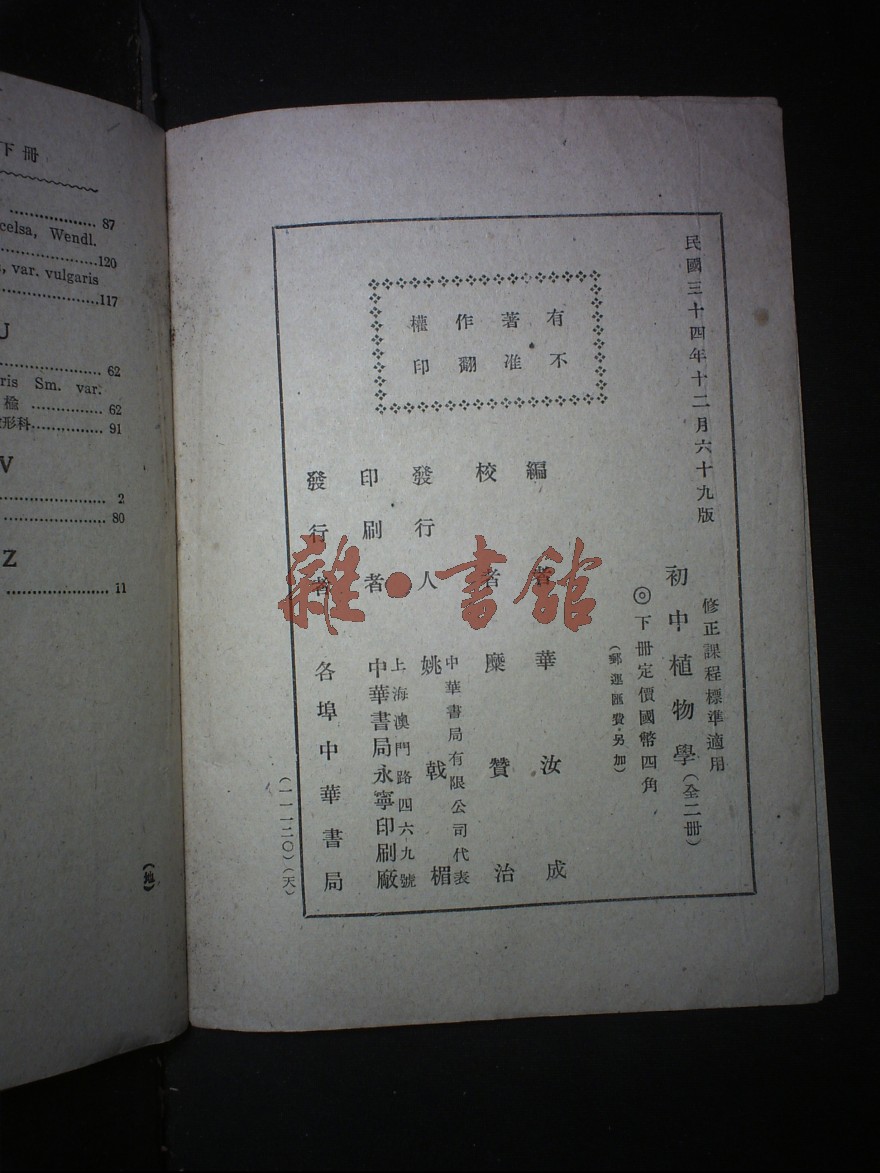 下冊
87
celsa, Wendl.
120
, var. vulgaris
117
U
62
ris Sm. var.
62
形科 91
V
2
80
Z
11
(地)
民國三十四年十二月六十九版
修正課程標準適用
初中植物學(全二冊)
◎下冊定價國幣四角
(郵運匯費另加)
有著作權
不准翻印
編者 華汝成
校者 糜贊治
發行人 中華書局有限公司代表 姚戟楣
印刷者 上海澳門路四六九號 中華書局永寧印刷廠
發行者 各埠中華書局
(一一一二〇)(天)
雜·書館